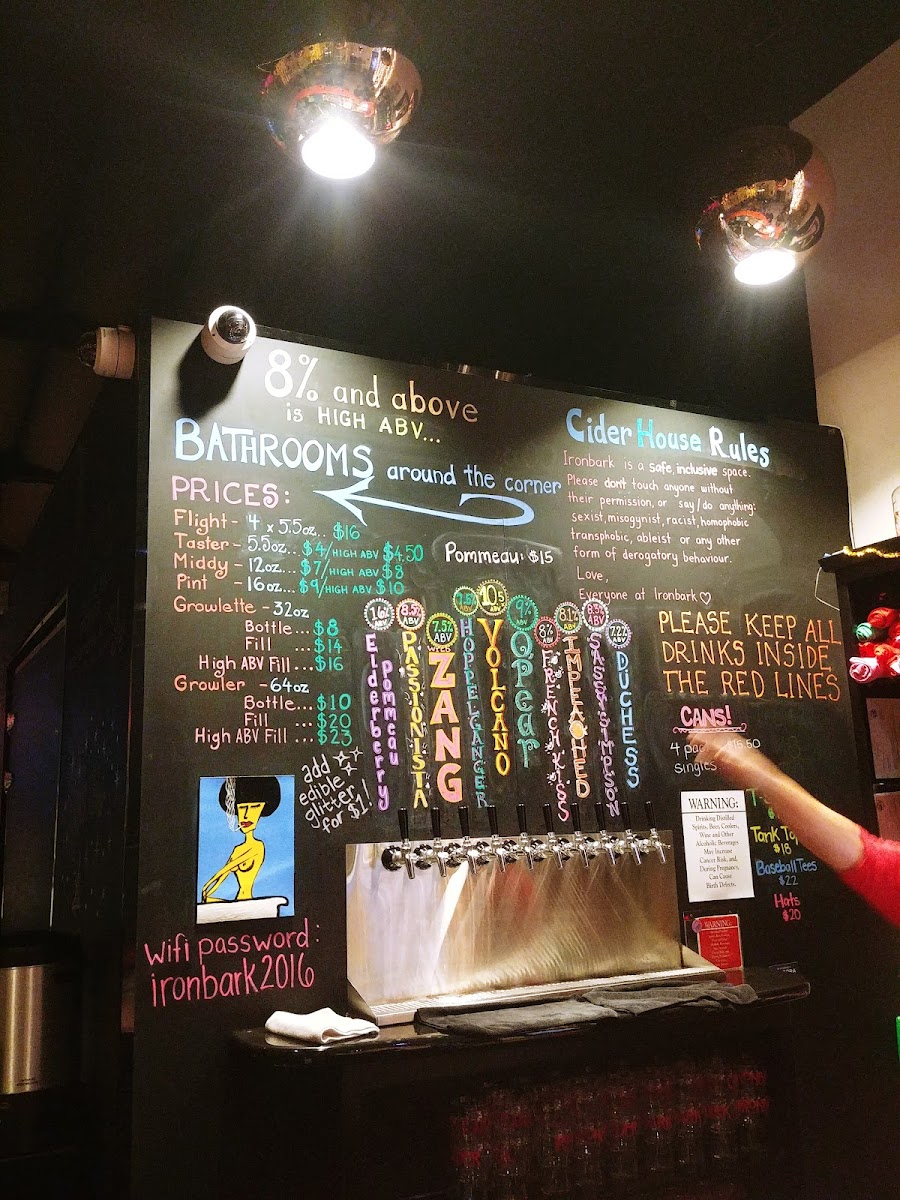 8% and above
is HIGH ABV...
BATHROOMS around the corner
PRICES:
Flight - 4 x 5.5oz.. $16
Taster - 5.5oz... $4/HIGH ABV $4.50
Middy - 12oz... $7/HIGH ABV $8
Pint - 16oz... $9/HIGH ABV $10
Growlette - 32oz
Bottle... $8
Fill ...$14
High ABV Fill... $16
Growler - 64oz
Bottle... $10
Fill ... $20
High ABV Fill ... $23
Pommeau: $15
add
edible
glitter
for $1!
Wifi password:
ironbark2016
Elderberry
Pommeau
8.5%
ABV
PASSIONISTA
7.5%
ABV
ZANG
7.5%
ABV
HOPPELGANGER
10.5
ABV
VOLCANO
9%
ABV
QPear
8%
ABV
FRENCH KISS
8.1%
ABV
IMPEACHED
8.5%
ABV
SASSY SIMPSON
7.2%
ABV
DUCHESS
Cider House Rules
Ironbark is a safe, inclusive space.
Please don't touch anyone without
their permission, or say/do anything:
sexist, misogynist, racist, homophobic
transphobic, ableist or any other
form of derogatory behaviour.
Love,
Everyone at Ironbark♡
PLEASE KEEP ALL
DRINKS INSIDE
THE RED LINES
CANS!
4
singles
WARNING:
Drinking Distilled
Spirits, Beer, Coolers,
Wine and Other
Alcoholic Beverages
May Increase
Cancer Risk, and,
During Pregnancy,
Can Cause
Birth Defects.
Tank
$18
Baseball Tees
$22
Hats
$20
WARNING